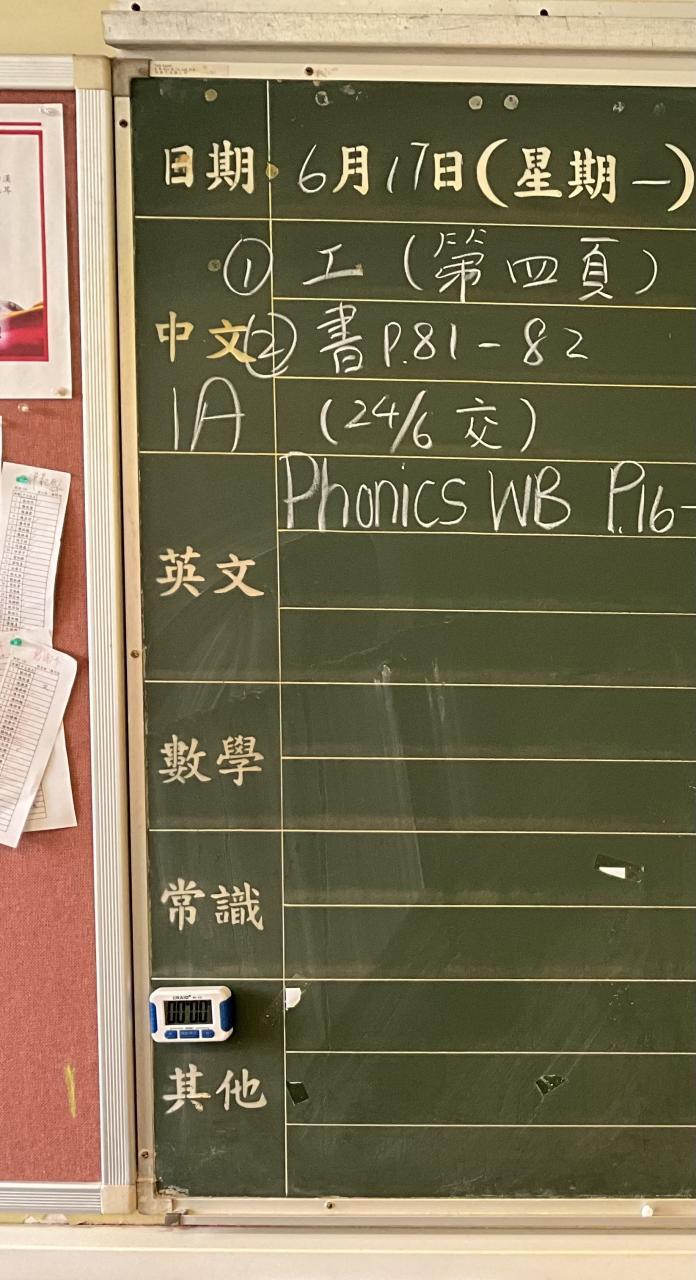 日期 6月17日(星期一)
① 工 (第四頁)
中文 ② 書 P.81-82
1A (24/6 交)
Phonics WB P.16-
英文
數學
常識
00:00
其他